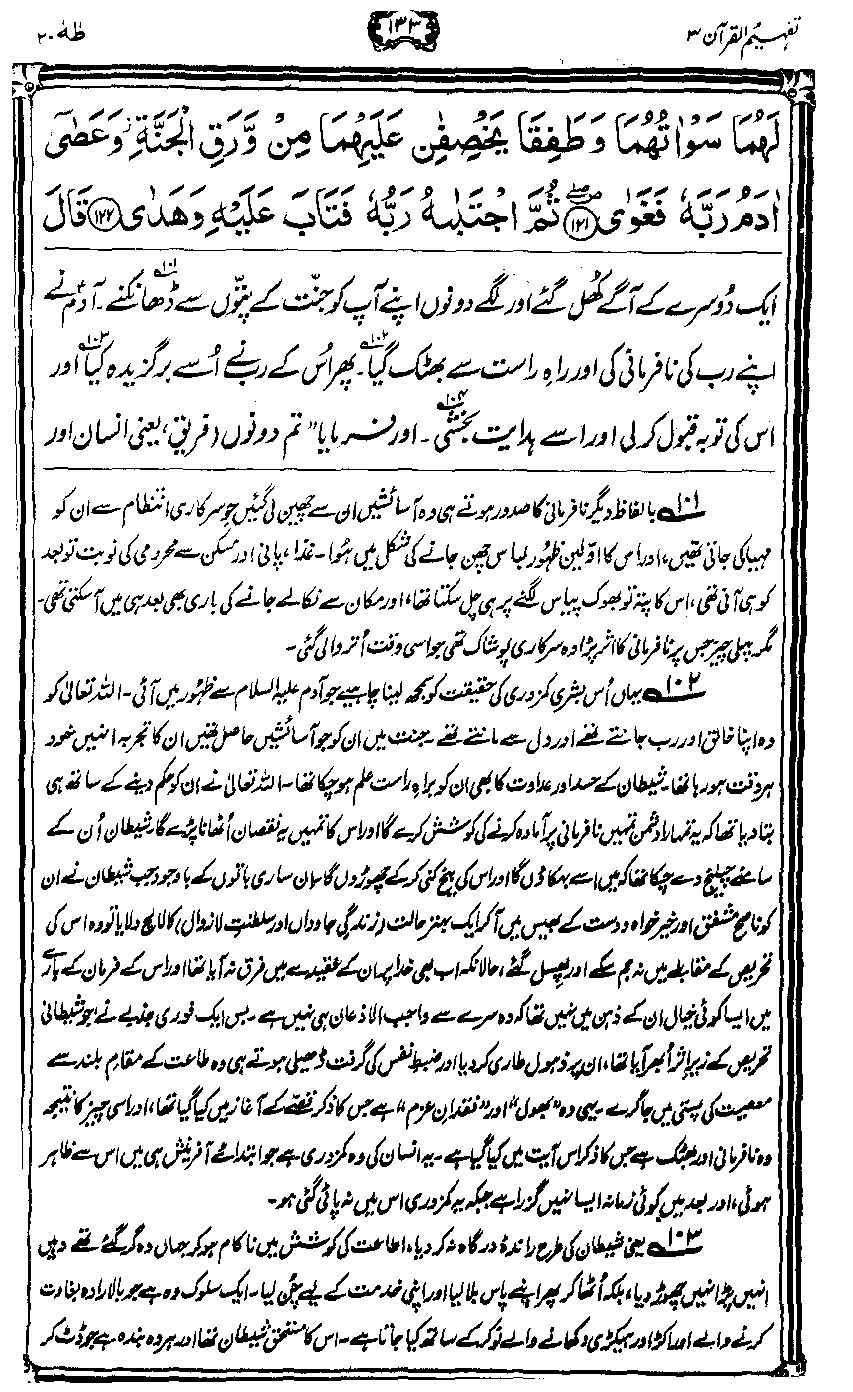 تفہیم القرآن ۳
۱۳۳
طٰہٰ ۲۰
لَهُمَا سَوْاٰتُهُمَا وَطَفِقَا يَخْصِفٰنِ عَلَيْهِمَا مِنْ وَّرَقِ الْجَنَّةِ ز وَعَصٰٓى
اٰدَمُ رَبَّهٗ فَغَوٰى ﴿۱۲۱﴾ ثُمَّ اجْتَبٰىهُ رَبُّهٗ فَتَابَ عَلَيْهِ وَهَدٰى ﴿۱۲۲﴾ قَالَ
ایک دُوسرے کے آگے کھُل گئے اور لگے دونوں اپنے آپ کو جنّت کے پتّوں سے ڈھانکنے۔۱۰۱ آدمؑ نے
اپنے رب کی نافرمانی کی اور راہِ راست سے بھٹک گیا۔۱۰۲ پھر اُس کے رب نے اُسے برگزیدہ کیا۱۰۳ اور
اس کی توبہ قبول کر لی اور اسے ہدایت بخشی۔۱۰۴ اور فرمایا ”تم دونوں (فریق، یعنی انسان اور
۱۰۱ بالفاظِ دیگر نافرمانی کا صدور ہوتے ہی وہ آسائشیں ان سے چھین لی گئیں جو سرکاری انتظام سے ان کو
مہیا کی جاتی تھیں، اور اس کا اوّلین ظہور لباس چھن جانے کی شکل میں ہُوا۔ غذا، پانی اور مسکن سے محرومی کی نوبت تو بعد
کو ہی آنی تھی، اس کا پتہ تو بھوک پیاس لگنے پر ہی چل سکتا تھا، اور مکان سے نکالے جانے کی باری بھی بعد ہی میں آ سکتی تھی۔
مگر پہلی چیز جس پر نافرمانی کا اثر پڑا وہ سرکاری پوشاک تھی جو اسی وقت اُتروالی گئی۔
۱۰۲ یہاں اُس بشری کمزوری کی حقیقت کو سمجھ لینا چاہیے جو آدم علیہ السلام سے ظہور میں آئی۔ اللہ تعالیٰ کو
وہ اپنا خالق اور رب جانتے تھے اور دل سے مانتے تھے۔ جنت میں ان کو جو آسائشیں حاصل تھیں ان کا تجربہ انہیں خود
ہر وقت ہو رہا تھا۔ شیطان کے حسد اور عداوت کا بھی ان کو براہِ راست علم ہو چکا تھا۔ اللہ تعالیٰ نے ان کو حکم دینے کے ساتھ ہی
بتا دیا تھا کہ یہ تمہارا دشمن تمہیں نافرمانی پر آمادہ کرنے کی کوشش کرے گا اور اس کا تمہیں یہ نقصان اُٹھانا پڑے گا۔ شیطان اُن کے
سامنے چیلنج دے چکا تھا کہ میں اسے بہکاؤں گا اور اس کی بیخ کنی کر کے چھوڑوں گا۔ ان ساری باتوں کے باوجود جب شیطان نے ان
کو ناصحِ مشفق اور خیر خواہ دوست کے بھیس میں آ کر ایک بہتر حالت (زندگیِ جاوداں اور سلطنتِ لازوال) کا لالچ دلایا تو وہ اس کی
تحریص کے مقابلے میں نہ جم سکے اور پھسل گئے، حالانکہ اب بھی خدا پر ان کے عقیدے میں فرق نہ آیا تھا اور اس کے فرمان کے بارے
میں ایسا کوئی خیال ان کے ذہن میں نہیں تھا کہ وہ سرے سے واجب الاذعان ہی نہیں ہے۔ بس ایک فوری جذبے نے جو شیطانی
تحریص کے زیرِ اثر اُبھر آیا تھا، ان پر ذہول طاری کر دیا اور ضبطِ نفس کی گرفت ڈھیلی ہوتے ہی وہ طاعت کے مقامِ بلند سے
معصیت کی پستی میں جا گرے۔ یہی وہ ”بھول“ اور ”فقدانِ عزم“ ہے جس کا ذکر قصّے کے آغاز میں کیا گیا تھا، اور اسی چیز کا نتیجہ
وہ نافرمانی اور بھٹک ہے جس کا ذکر اس آیت میں کیا گیا ہے۔ یہ انسان کی وہ کمزوری ہے جو ابتدائے آفرینش ہی میں اس سے ظاہر
ہوئی، اور بعد میں کوئی زمانہ ایسا نہیں گزرا ہے جبکہ یہ کمزوری اس میں نہ پائی گئی ہو۔
۱۰۳ یعنی شیطان کی طرح راندۂ درگاہ نہ کر دیا، اطاعت کی کوشش میں ناکام ہو کر جہاں وہ گر گئے تھے وہیں
انہیں پڑا نہیں چھوڑ دیا، بلکہ اُٹھا کر پھر اپنے پاس بلا لیا اور اپنی خدمت کے لیے چُن لیا۔ ایک سلوک وہ ہے جو بالارادہ بغاوت
کرنے والے اور اکڑ اور ہیکڑی دکھانے والے نوکر کے ساتھ کیا جاتا ہے۔ اس کا مستحق شیطان تھا اور ہر وہ بندہ ہے جو ڈٹ کر